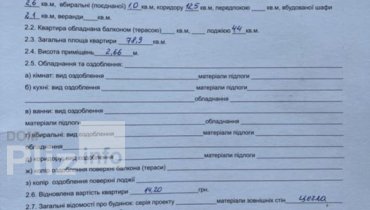 2,6 кв.м, вбиральні (поєднаної) 1,0 кв.м, коридору 12,5 кв.м, передпокою ___ кв.м, вбудованої шафи
2,1 кв.м, веранди ___ кв.м.
2.2. Квартира обладнана балконом (терасою) ___ кв.м, лоджією 4,4 кв.м.
2.3. Загальна площа квартири 78,9 кв.м.
2.4. Висота приміщень 2,66 м.
2.5. Обладнання та оздоблення:
а) кімнат: вид оздоблення ___ матеріали підлоги
б) кухні: вид оздоблення ___ матеріали підлоги
обладнання
в) ванни: вид оздоблення
матеріали підлоги ___ обладнання
г) вбиральні: вид оздоблення
матеріали підлоги ___ обладнання
коридору: вид оздоблення ___ матеріали підлоги
ж) колір оздоблення поверхні балкона (тераси)
з) колір оздоблення поверхні лоджії
2.6. Відновлена вартість квартири 1420 грн.
2.7. Загальні відомості про будинок: серія проекту ___ матеріали зовнішніх стін цегла
DOM
Plitz info